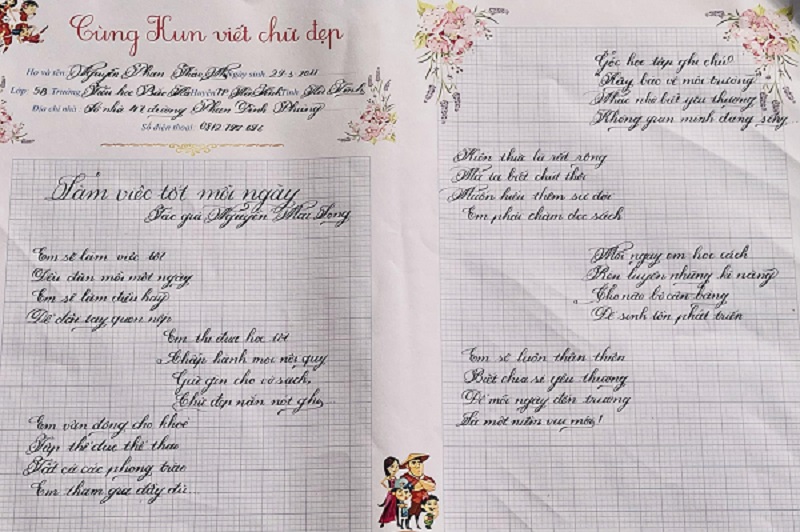 Cùng Kun viết chữ đẹp
Họ và tên: Nguyễn Phan Thảo Ngày sinh: 29.3.2011
Lớp: 5B Trường Tiểu học Bắc Hà Huyện TP Hà Tĩnh Tỉnh Hà Tĩnh
Địa chỉ nhà: Số nhà 47 đường Phan Đình Phùng
Số điện thoại:
Làm việc tốt mỗi ngày
Tác giả Nguyễn Mai Long
Em sẽ làm việc tốt
Đều đặn mỗi một ngày
Em sẽ làm điều hay
Để dần tay quen nếp
Em thi đua học tốt
Chấp hành mọi nội quy
Giữ gìn cho vở sạch,
Chữ đẹp nắn nót ghi
Em vận động cho khoẻ
Tập thể dục thể thao
Tất cả các phong trào
Em tham gia đầy đủ...
Góc học tập ghi chú?
"Hãy bảo vệ môi trường"
Nhắc nhở biết yêu thương
Không gian mình đang sống...
Kiến thức là rất rộng
Mà ta biết chút thôi
Muốn hiểu thêm sự đời
Em phải chăm đọc sách
Mỗi ngày em học cách
Rèn luyện những kĩ năng
Cho não bộ cân bằng
Để sinh tồn phát triển
Em sẽ luôn thân thiện
Biết chia sẻ yêu thương
Để mỗi ngày đến trường
Là một niềm vui mới!